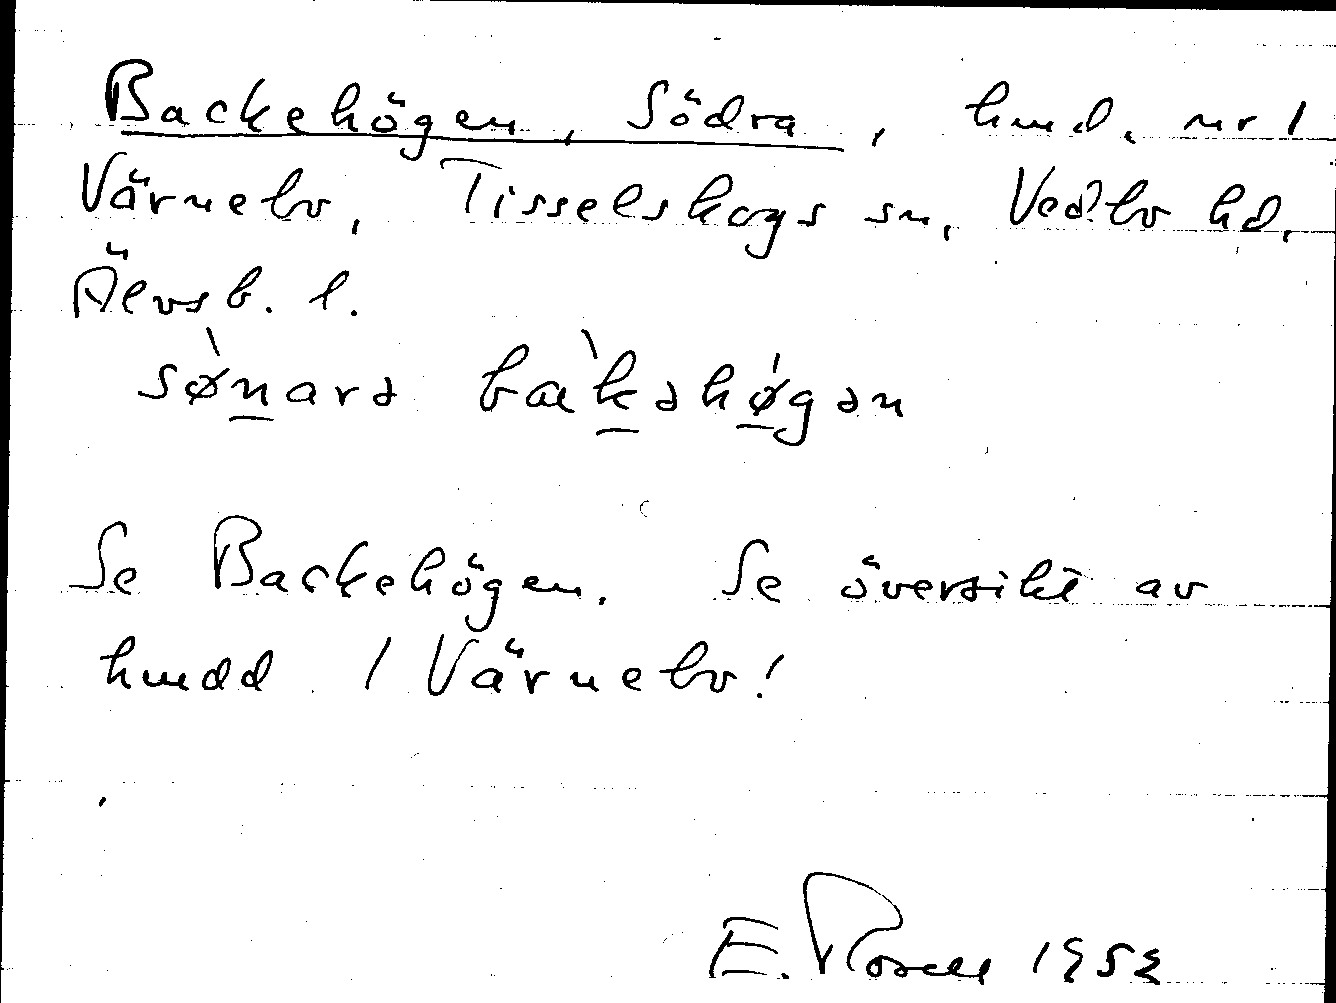 Backehögen, Södra, hmd. nr 1
Värnebo, Tisselskogs sn, Vedbo hd.
Älvsb. l.
sø̀narə bàkəhǿgən
Se Backehögen. Se översikt av
hmdd 1 Värnebo!
E. Rosell 1952